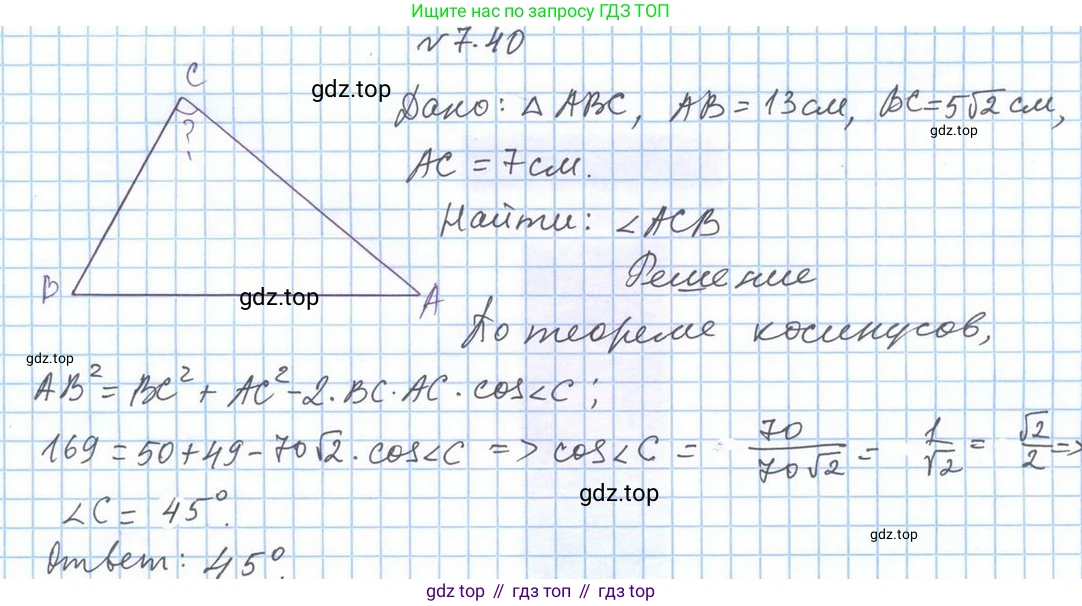 Ищите нас по запросу ГДЗ ТОП
№ 7.40
C
gdz.top
Дано: △ ABC, AB = 13 см, BC = 5√2 см,
gdz.top
?
AC = 7 см.
Найти: ∠ACB
Решение
B
gdz.top
A
По теореме косинусов,
gdz.top
AB² = BC² + AC² - 2·BC·AC·cos∠C ;
169 = 50 + 49 - 70√2·cos∠C => cos∠C = 70/70√2 = 1/√2 = √2/2 =>
gdz.top
∠C = 45°.
gdz.top
Ответ: 45°.
gdz top // гдз топ // gdz top // гдз топ